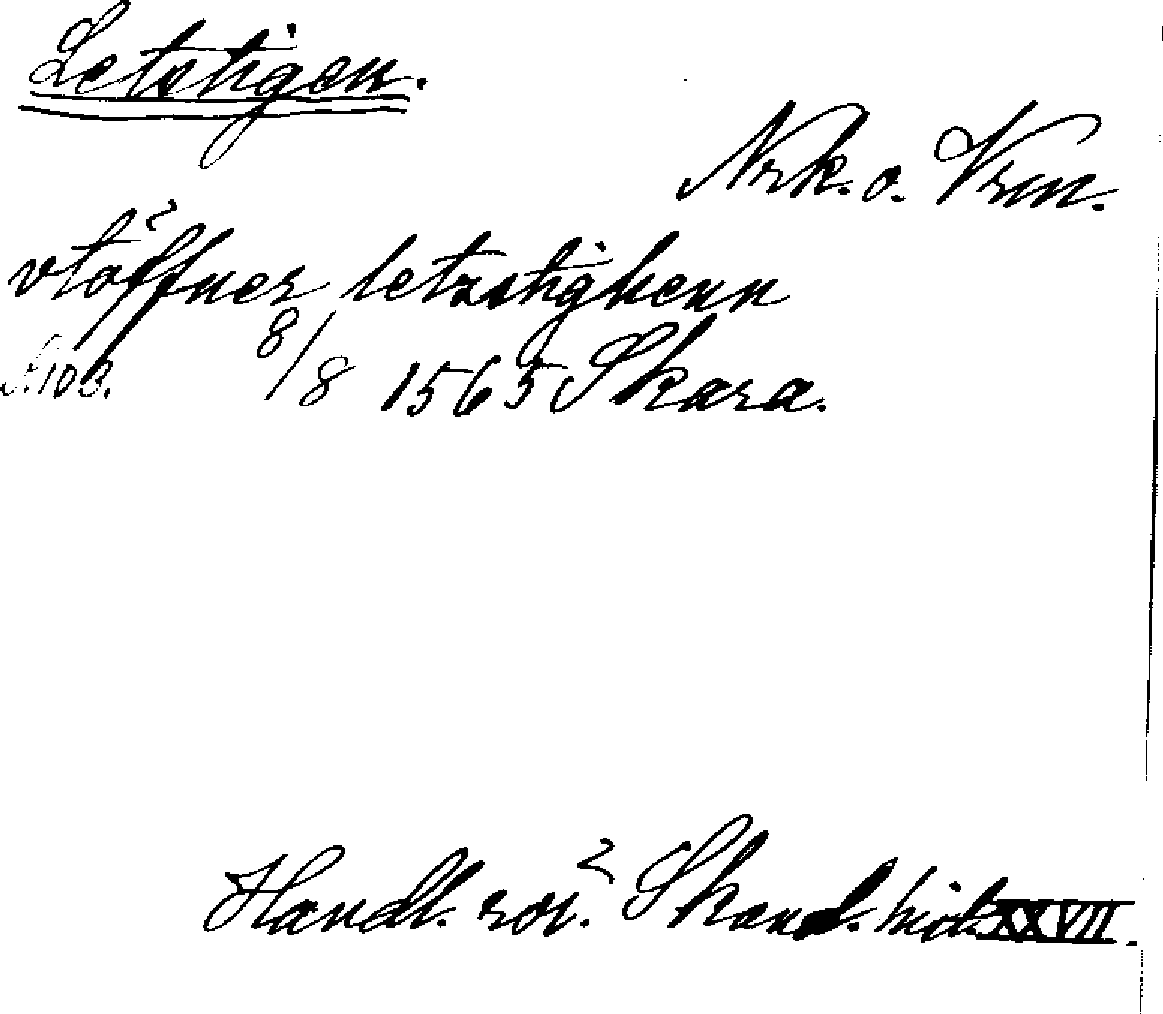 Letstigen.
Nrk. o. Vrm.
vtöffuer letzstighenn
S. 100. 8/8 1565 Skara.
Handl. rör. Skand. hist. XXVII.